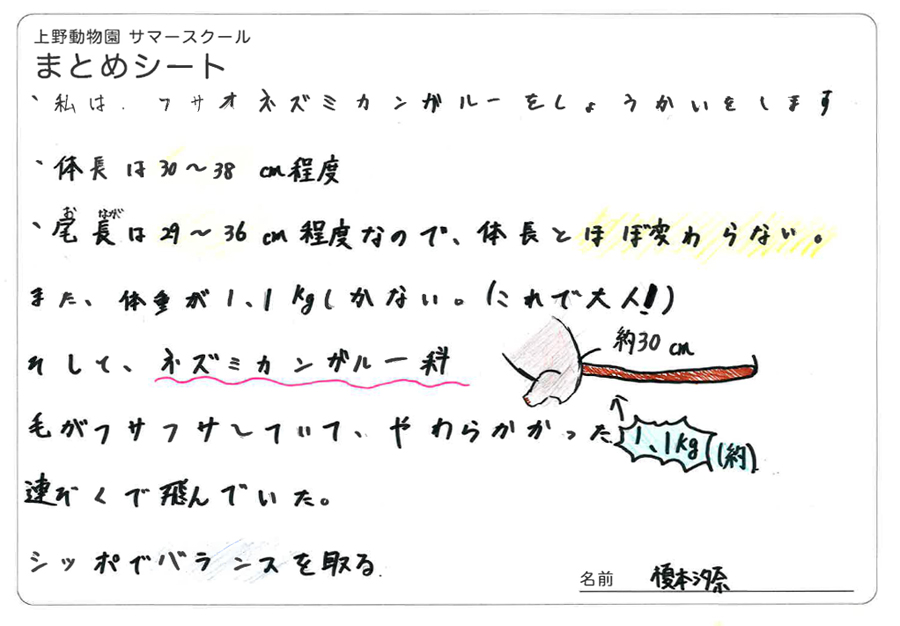 上野動物園 サマースクール
まとめシート
、私は、フサオネズミカンガルーをしょうかいをします
、体長は30〜38cm程度
、尾長は29〜36cm程度なので、体長とほぼ変わらない。
お はが
また、体重が1、1kgしかない。(これで大人!)
約30cm
そして、ネズミカンガルー科
毛がフサフサしていて、やわらかかった
1、1kg(約)
連ぞくで飛んでいた。
シッポでバランスを取る
名前 榎本汐奈